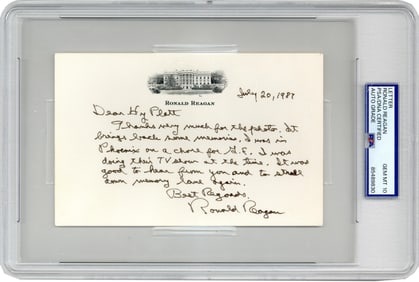 RONALD REAGAN
July 20, 1987
Dear Hy Platt
Thanks very much for the photo. It
brings back some memories. I was in
Phoenix on a chore for G.E. I was
doing their TV show at the time. It was
good to hear from you and to stroll
down memory lane again.
Best Regards
Ronald Reagan
LETTER
RONALD REAGAN
PSA/DNA CERTIFIED
AUTO GRADE
GEM MT 10